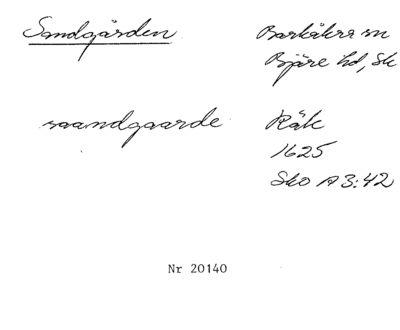 Sandgården
Barkåkra sn
Bjäre hd, Sk
saandgaarde
Räk
1625
Sko A3:42
Nr 20140